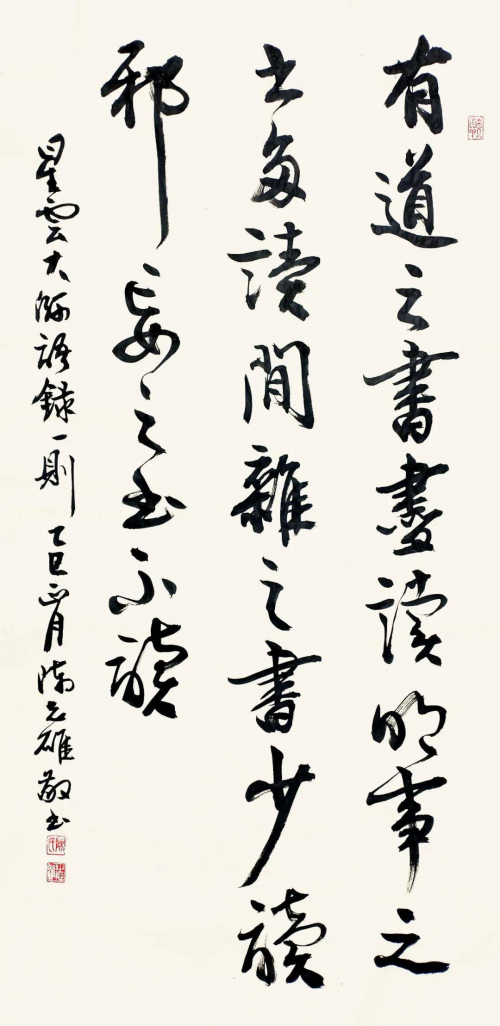 有道之書盡讀明事之
书多讀閒雜之書少讀
邪妄之书不讀
星雲大師語錄一則 乙巳 月 雄敬书